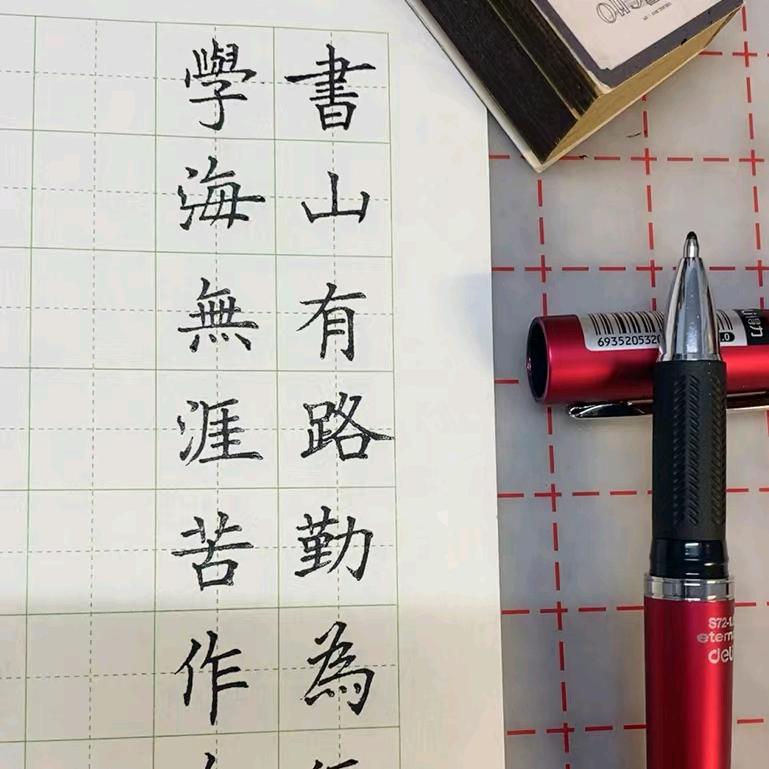 書山有路勤為
學海無涯苦作
6935205320
S72-1.
deli